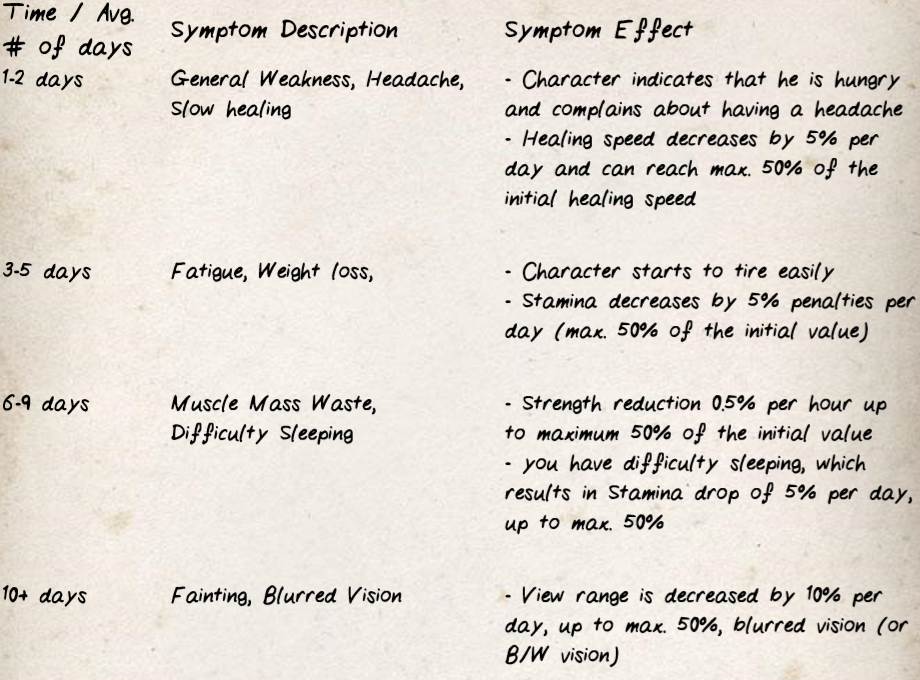 Time / Avg.
# of days
Symptom Description
Symptom Effect
1-2 days
General Weakness, Headache,
Slow healing
- Character indicates that he is hungry
and complains about having a headache
- Healing speed decreases by 5% per
day and can reach max. 50% of the
initial healing speed
3-5 days
Fatigue, Weight loss,
- Character starts to tire easily
- Stamina decreases by 5% penalties per
day (max. 50% of the initial value)
6-9 days
Muscle Mass Waste,
Difficulty Sleeping
- Strength reduction 0.5% per hour up
to maximum 50% of the initial value
- you have difficulty sleeping, which
results in Stamina drop of 5% per day,
up to max. 50%
10+ days
Fainting, Blurred Vision
- View range is decreased by 10% per
day, up to max. 50%, blurred vision (or
B/W vision)